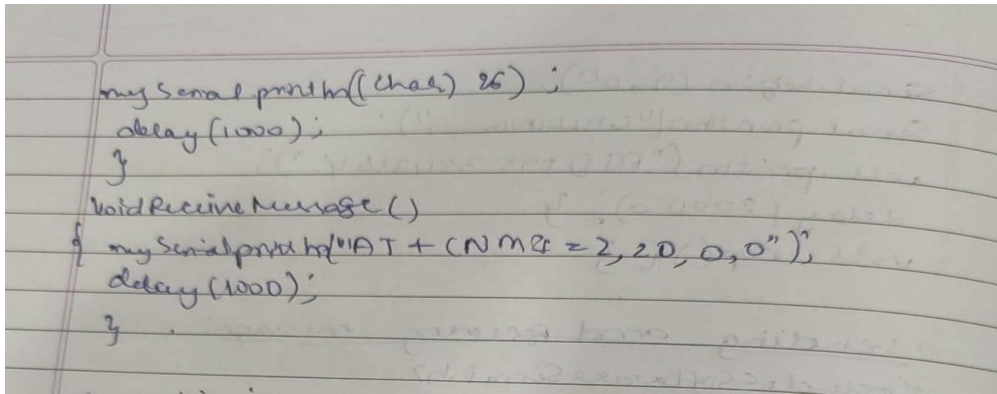 mySerial.println((char) 26);
delay(1000);
}
void Recieve Message()
{ mySerial.println("AT + CNMI = 2, 20, 0, 0");
delay(1000);
}